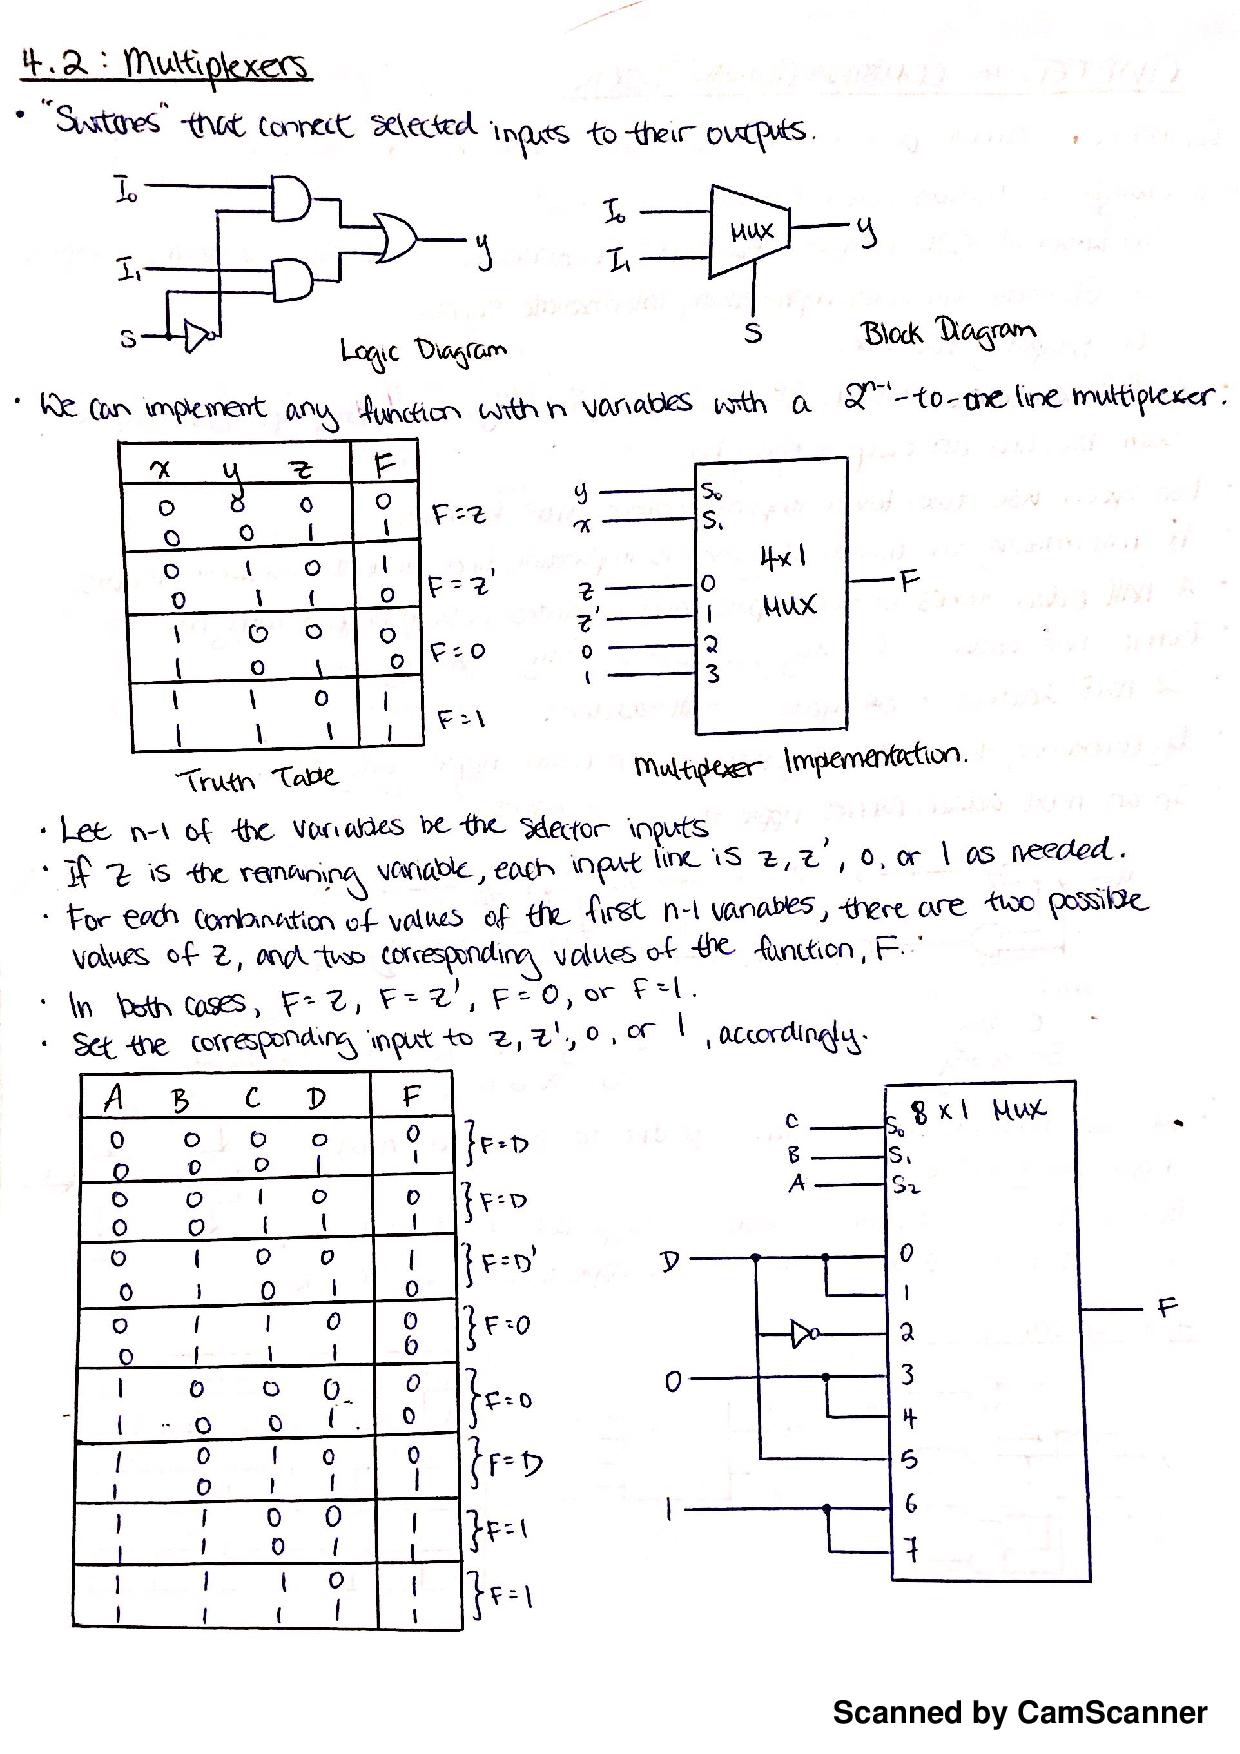 4.2: Multiplexers
• "Switches" that connect selected inputs to their outputs.
I₀
I₁
S
y
Logic Diagram
I₀
I₁
MUX
y
S
Block Diagram
• We can implement any function with n variables with a 2ⁿ⁻¹-to-one line multiplexer.
x y z F
0 0 0 0
0 0 1 1
F=z
0 1 0 1
0 1 1 0
F=z'
1 0 0 0
1 0 1 0
F=0
1 1 0 1
1 1 1 1
F=1
Truth Table
y S₀
x S₁
4x1
MUX
z 0
z' 1
0 2
1 3
F
Multiplexer Implementation.
• Let n-1 of the variables be the selector inputs
• If z is the remaining variable, each input line is z, z', 0, or 1 as needed.
• For each combination of values of the first n-1 variables, there are two possible
values of z, and two corresponding values of the function, F.
• In both cases, F=z, F=z', F=0, or F=1.
• Set the corresponding input to z, z', 0, or 1, accordingly.
A B C D F
0 0 0 0 0
0 0 0 1 1
}F=D
0 0 1 0 0
0 0 1 1 1
}F=D
0 1 0 0 1
0 1 0 1 0
}F=D'
0 1 1 0 0
0 1 1 1 0
}F=0
1 0 0 0 0
1 0 0 1 0
}F=0
1 0 1 0 0
1 0 1 1 1
}F=D
1 1 0 0 1
1 1 0 1 1
}F=1
1 1 1 0 1
1 1 1 1 1
}F=1
8x1 MUX
C S₀
B S₁
A S₂
D 0
1
2
0 3
4
5
1 6
7
F
Scanned by CamScanner